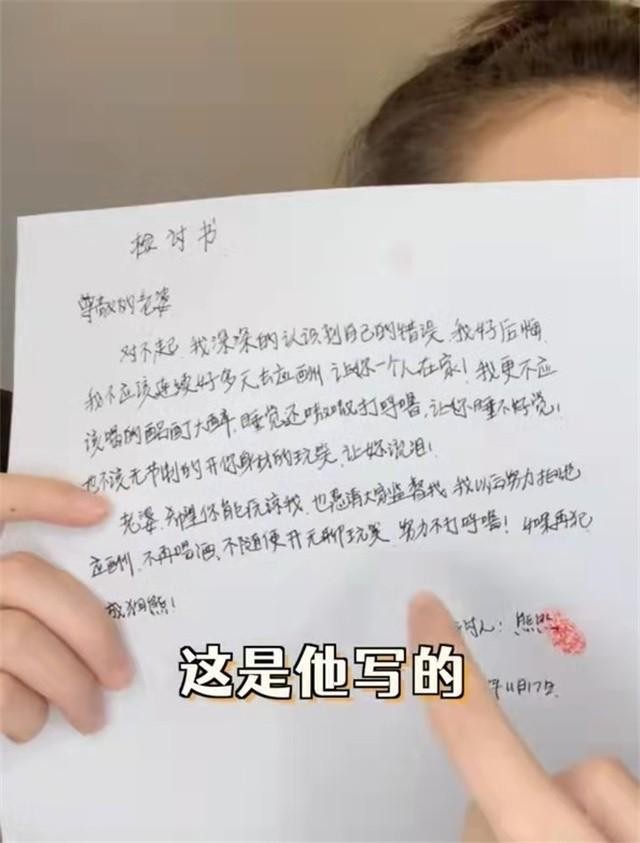 检讨书
尊敬的老婆
对不起,我深深的认识到自己的错误,我好后悔
我不应该连续好多天去应酬,让你一个人在家!我更不应
该喝的酩酊大醉,睡觉还嗷嗷打呼噜,让你睡不好觉!
也不该无节制的开你身材的玩笑,让你流泪!
老婆,希望你能原谅我,也恳请大家监督我,我以后努力拒绝
应酬,不再喝酒,不随便开无聊玩笑,努力不打呼噜!如果再犯
我狗熊!
讨人:熊
这是他写的
年11月17日